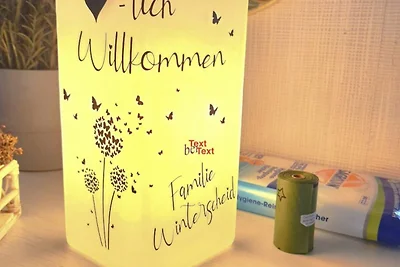 -lich
Willkommen
Text
byText
Familie
Winterscheid
ygiene-Rein
her